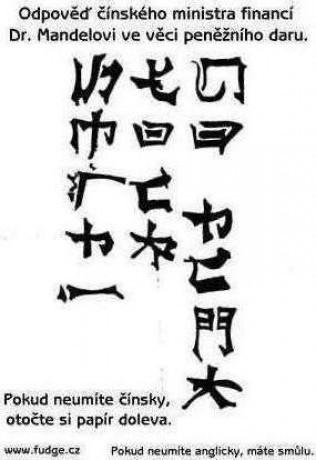 Odpověď čínského ministra financí
Dr. Mandelovi ve věci peněžního daru.
GO FUCK
YOUR
SELF!
Pokud neumíte čínsky,
otočte si papír doleva.
www.fudge.cz
Pokud neumíte anglicky, máte smůlu.